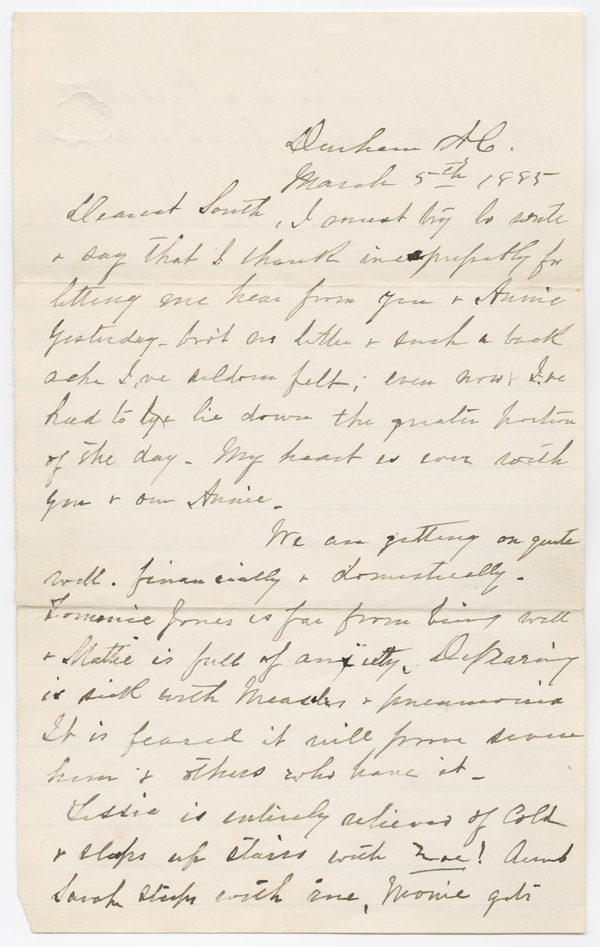 Durham N.C.
March 5th 1885
Dearest South, I must try to write
& say that I thank inexpressibly for
letting me hear from you & Annie
Yesterday - bro't me letter & such a back
ache I,ve seldom felt; even now I,ve
had to lye lie down the greater portion
of the day - My heart is ever with
you & our Annie -
We are getting on quite
well. financially & domestically -
Jones is far from being well
& Mattie is full of anxiety,
is sick with Measles & pneumonia
It is feared it will prove severe
him & others who have it -
Lessie is entirely relieved of Cold
& sleeps up stairs with Zoe! Aunt
Sarah sleeps with me, Monie gets